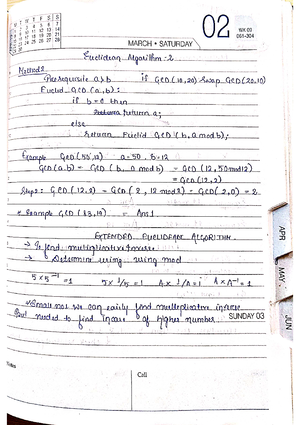 02
WK 09
061-304
MARCH • SATURDAY
Euclidean Algorithm-2
Method 2
Prerequisite a>b if GCD(10,20) Swap GCD(20,10)
Euclid_GCD(a,b):
if b=0 then
return a;
else
return Euclid_GCD(b, a mod b);
Example GCD(50,12) a=50, b=12
GCD(a,b) = GCD(b, a mod b) = GCD(12, 50 mod 12)
= GCD(12,2)
Step 2: GCD(12,2) = GCD(2, 12 mod 2) = GCD(2,0) = 2
Example GCD(83,19) = Ans 1
EXTENDED EUCLIDEAN ALGORITHM
→ To find multiplicative inverse
→ Determine using using mod
5 × 5⁻¹ = 1 5 × 1/5 = 1 A × 1/A = 1 A × A⁻¹ = 1
Small nos we can easily find multiplicative inverse
But needed to find inverse of higher number
SUNDAY 03
APR
MAY
JUN
Notes
Call